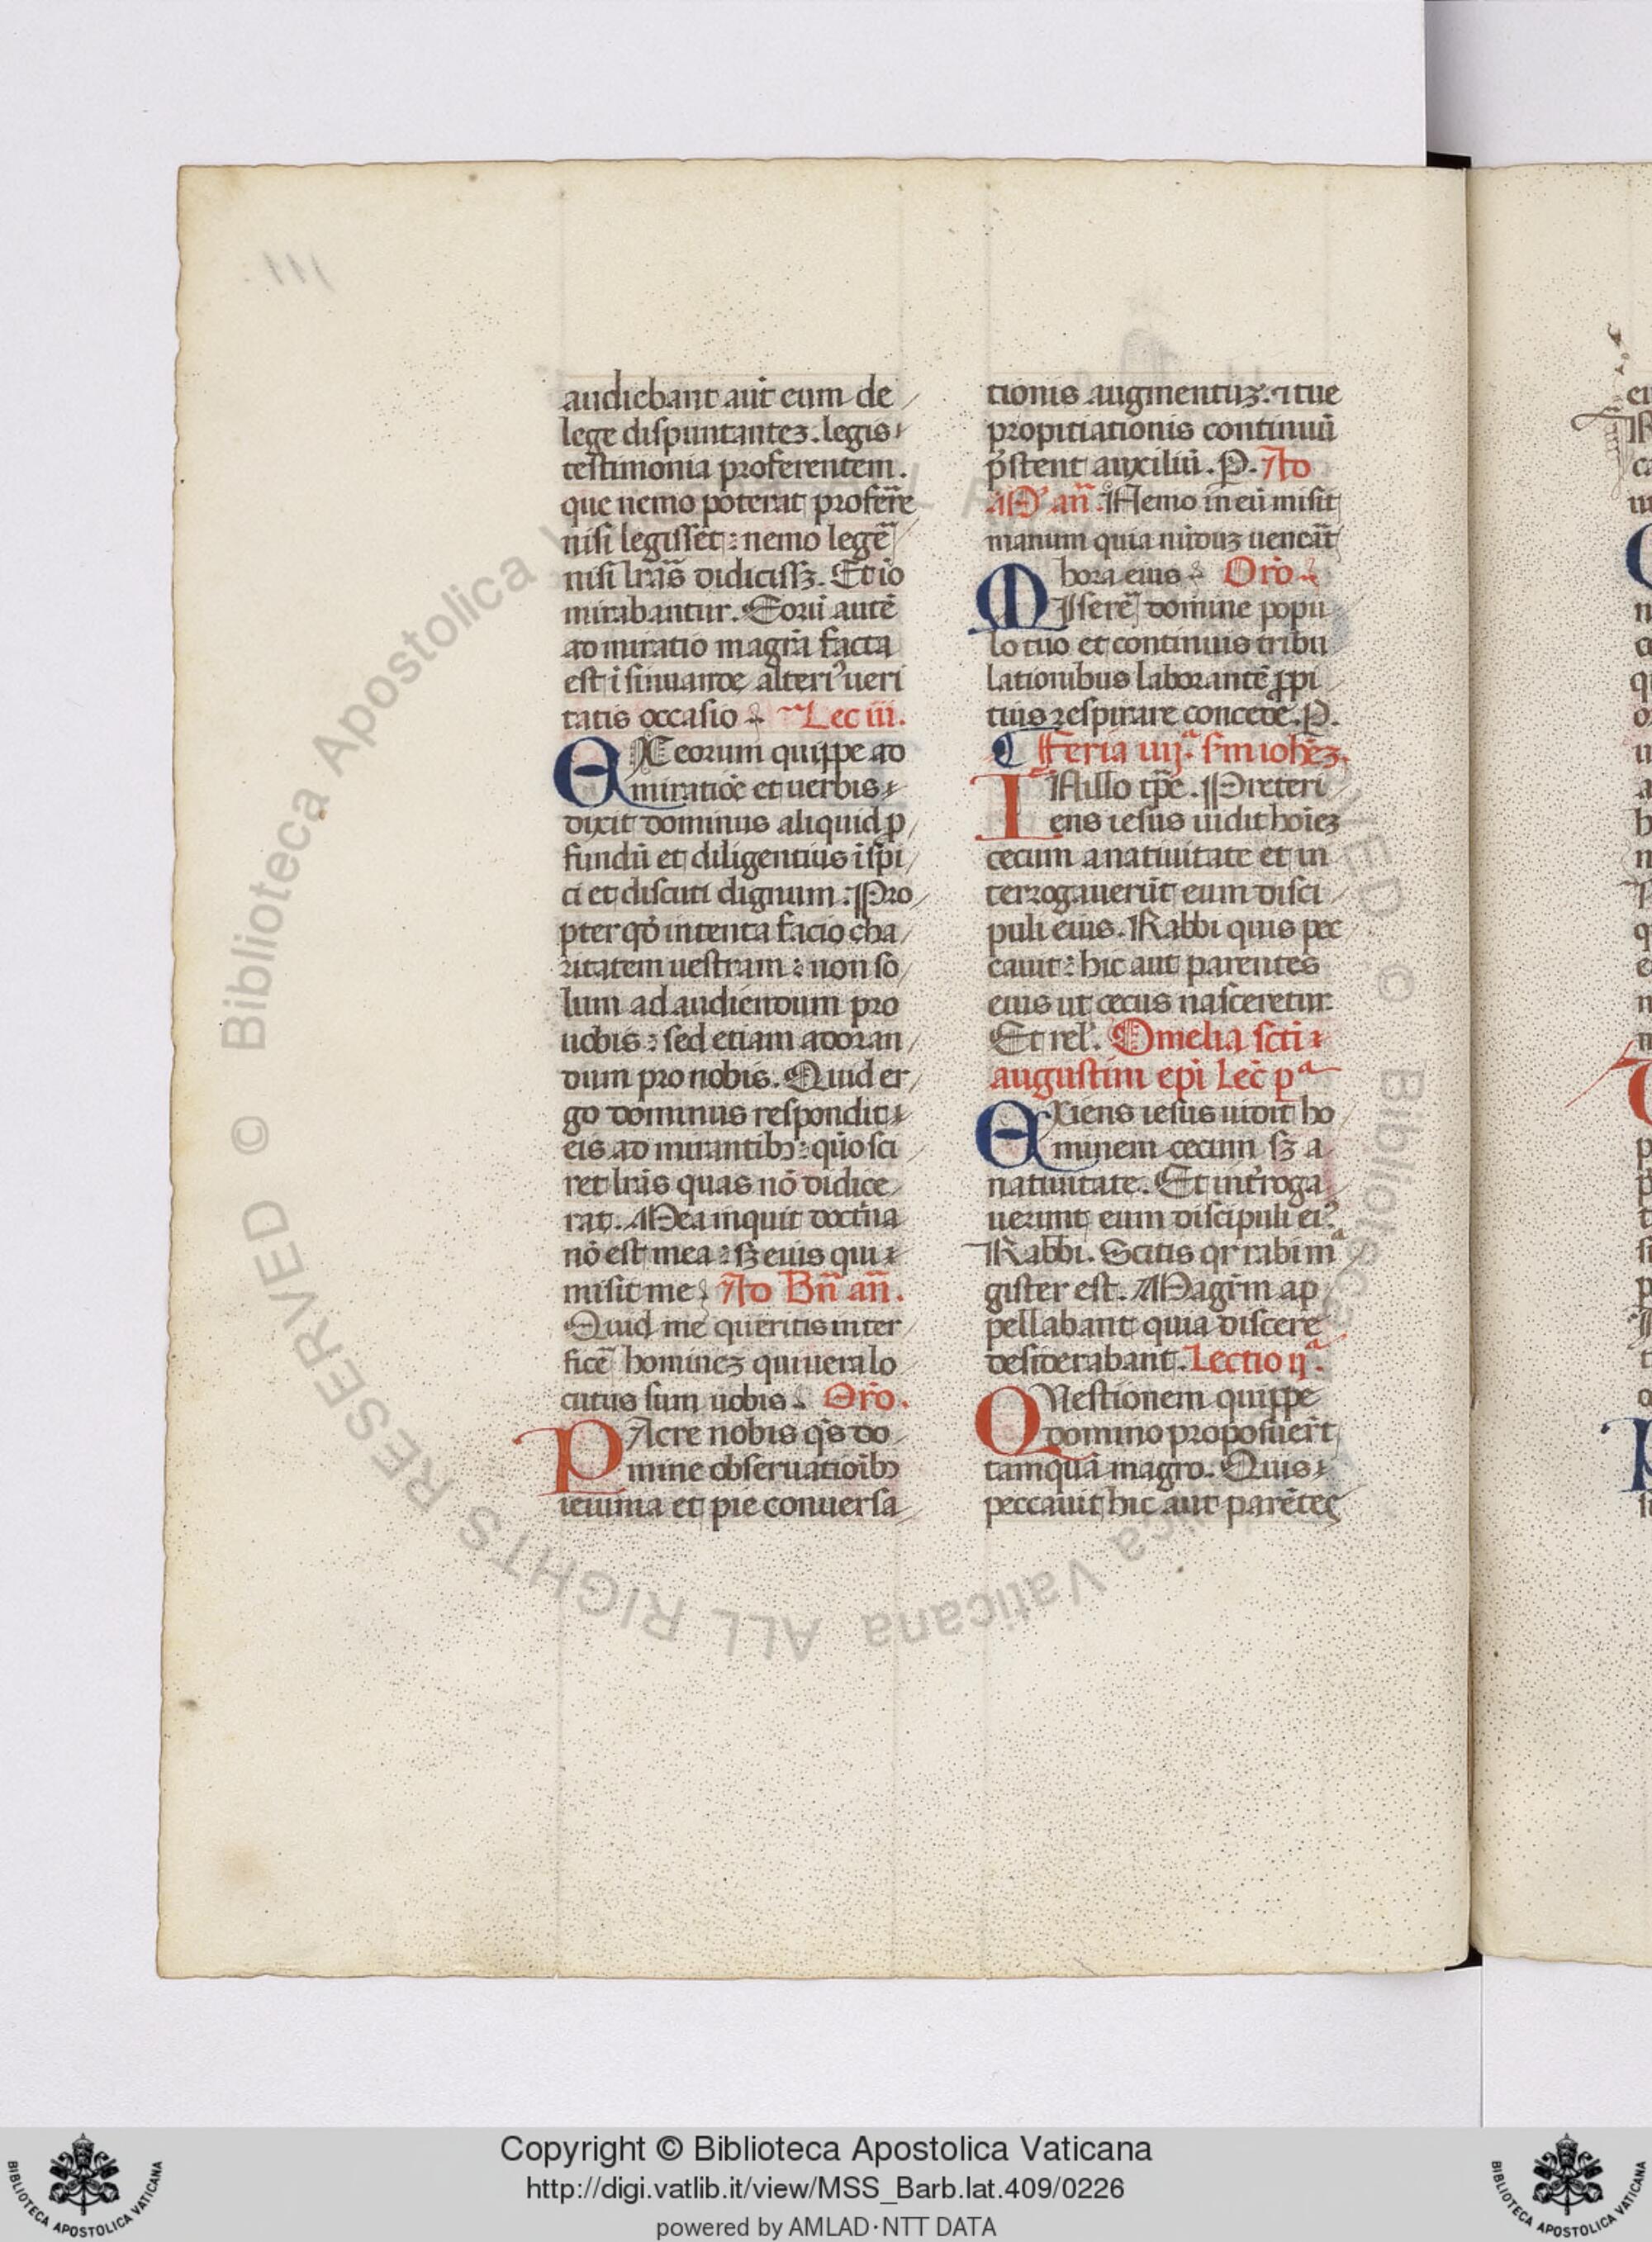 audiebant aut̃ eum de
lege disputantez. legis
testimonia proferentem.
que nemo poterat proferr̃e
nisi legisset: nemo legẽ
nisi lr̃as didicissꝫ. Et io
mirabantur. Eorũ autẽ
admiratio magr̃a facta
est ĩsinuande alteriꝰ ueri
tatis occasio Lec iii.
EX eorum quippe ad
miratiõe et uerbis
dixit dominus aliquid ꝓ
fundũ et diligentius ĩspi
ci et discuti dignum. Pro
pter qđ intenta facio cha
ritatem uestram: non so
lum ad audiendum pro
uobis: sed etiam ad oran
dum pro nobis. Quid er
go dominus respondit
eis admirantibꝫ: quõ sci
ret lr̃as quas nõ didice
rat. Mea inquit doct̃na
nõ est mea: sꝫ eius qui
misit me Ad Bñ añ.
Quid me queritis inter
ficẽ hominez qui uera lo
cutus sum uobis Orõ.
PAcre nobis qs̃ do
mine obseruatiõibꝫ
ieiunia et pie conuersa
tionis augmentuꝫ. ⁊ tue
propitiationis continuũ
p̃stent auxiliũ. P. Ad
M añ. Nemo in eũ misit
manum quia nunduꝫ uenerãt
hora eius Orõ
MIserẽ domine popu
lo tuo et continuis tribu
lationibus laborantẽ ꝓpi
tius respirare concede. P.
Feria iiij.ª s̃m ioh̃ez.
IN illo tp̃e. Preteri
ens iesus uidit hoĩez
cecum a natiuitate et in
terrogauerũt eum disci
puli eius. Rabbi quis pec
cauit: hic aut parentes
eius ut cecus nasceretur.
Et rel̃. Omelia scti
augustini epĩ Lec̃ pª
EXiens iesus uidit ho
minem cecum sꝫ a
natiuitate. Et int̃roga
uerunt eum discipuli eiꝰ.
Rabbi. Scitis qr rabi mª
gister est. Magr̃m ap
pellabant quia discere
desiderabant. Lectio ijª.
QVestionem quippe
domino proposuer̃t
tamquã magr̃o. Quis
peccauit hic aut parẽtes
Copyright © Biblioteca Apostolica Vaticana
http://digi.vatlib.it/view/MSS_Barb.lat.409/0226
powered by AMLAD·NTT DATA